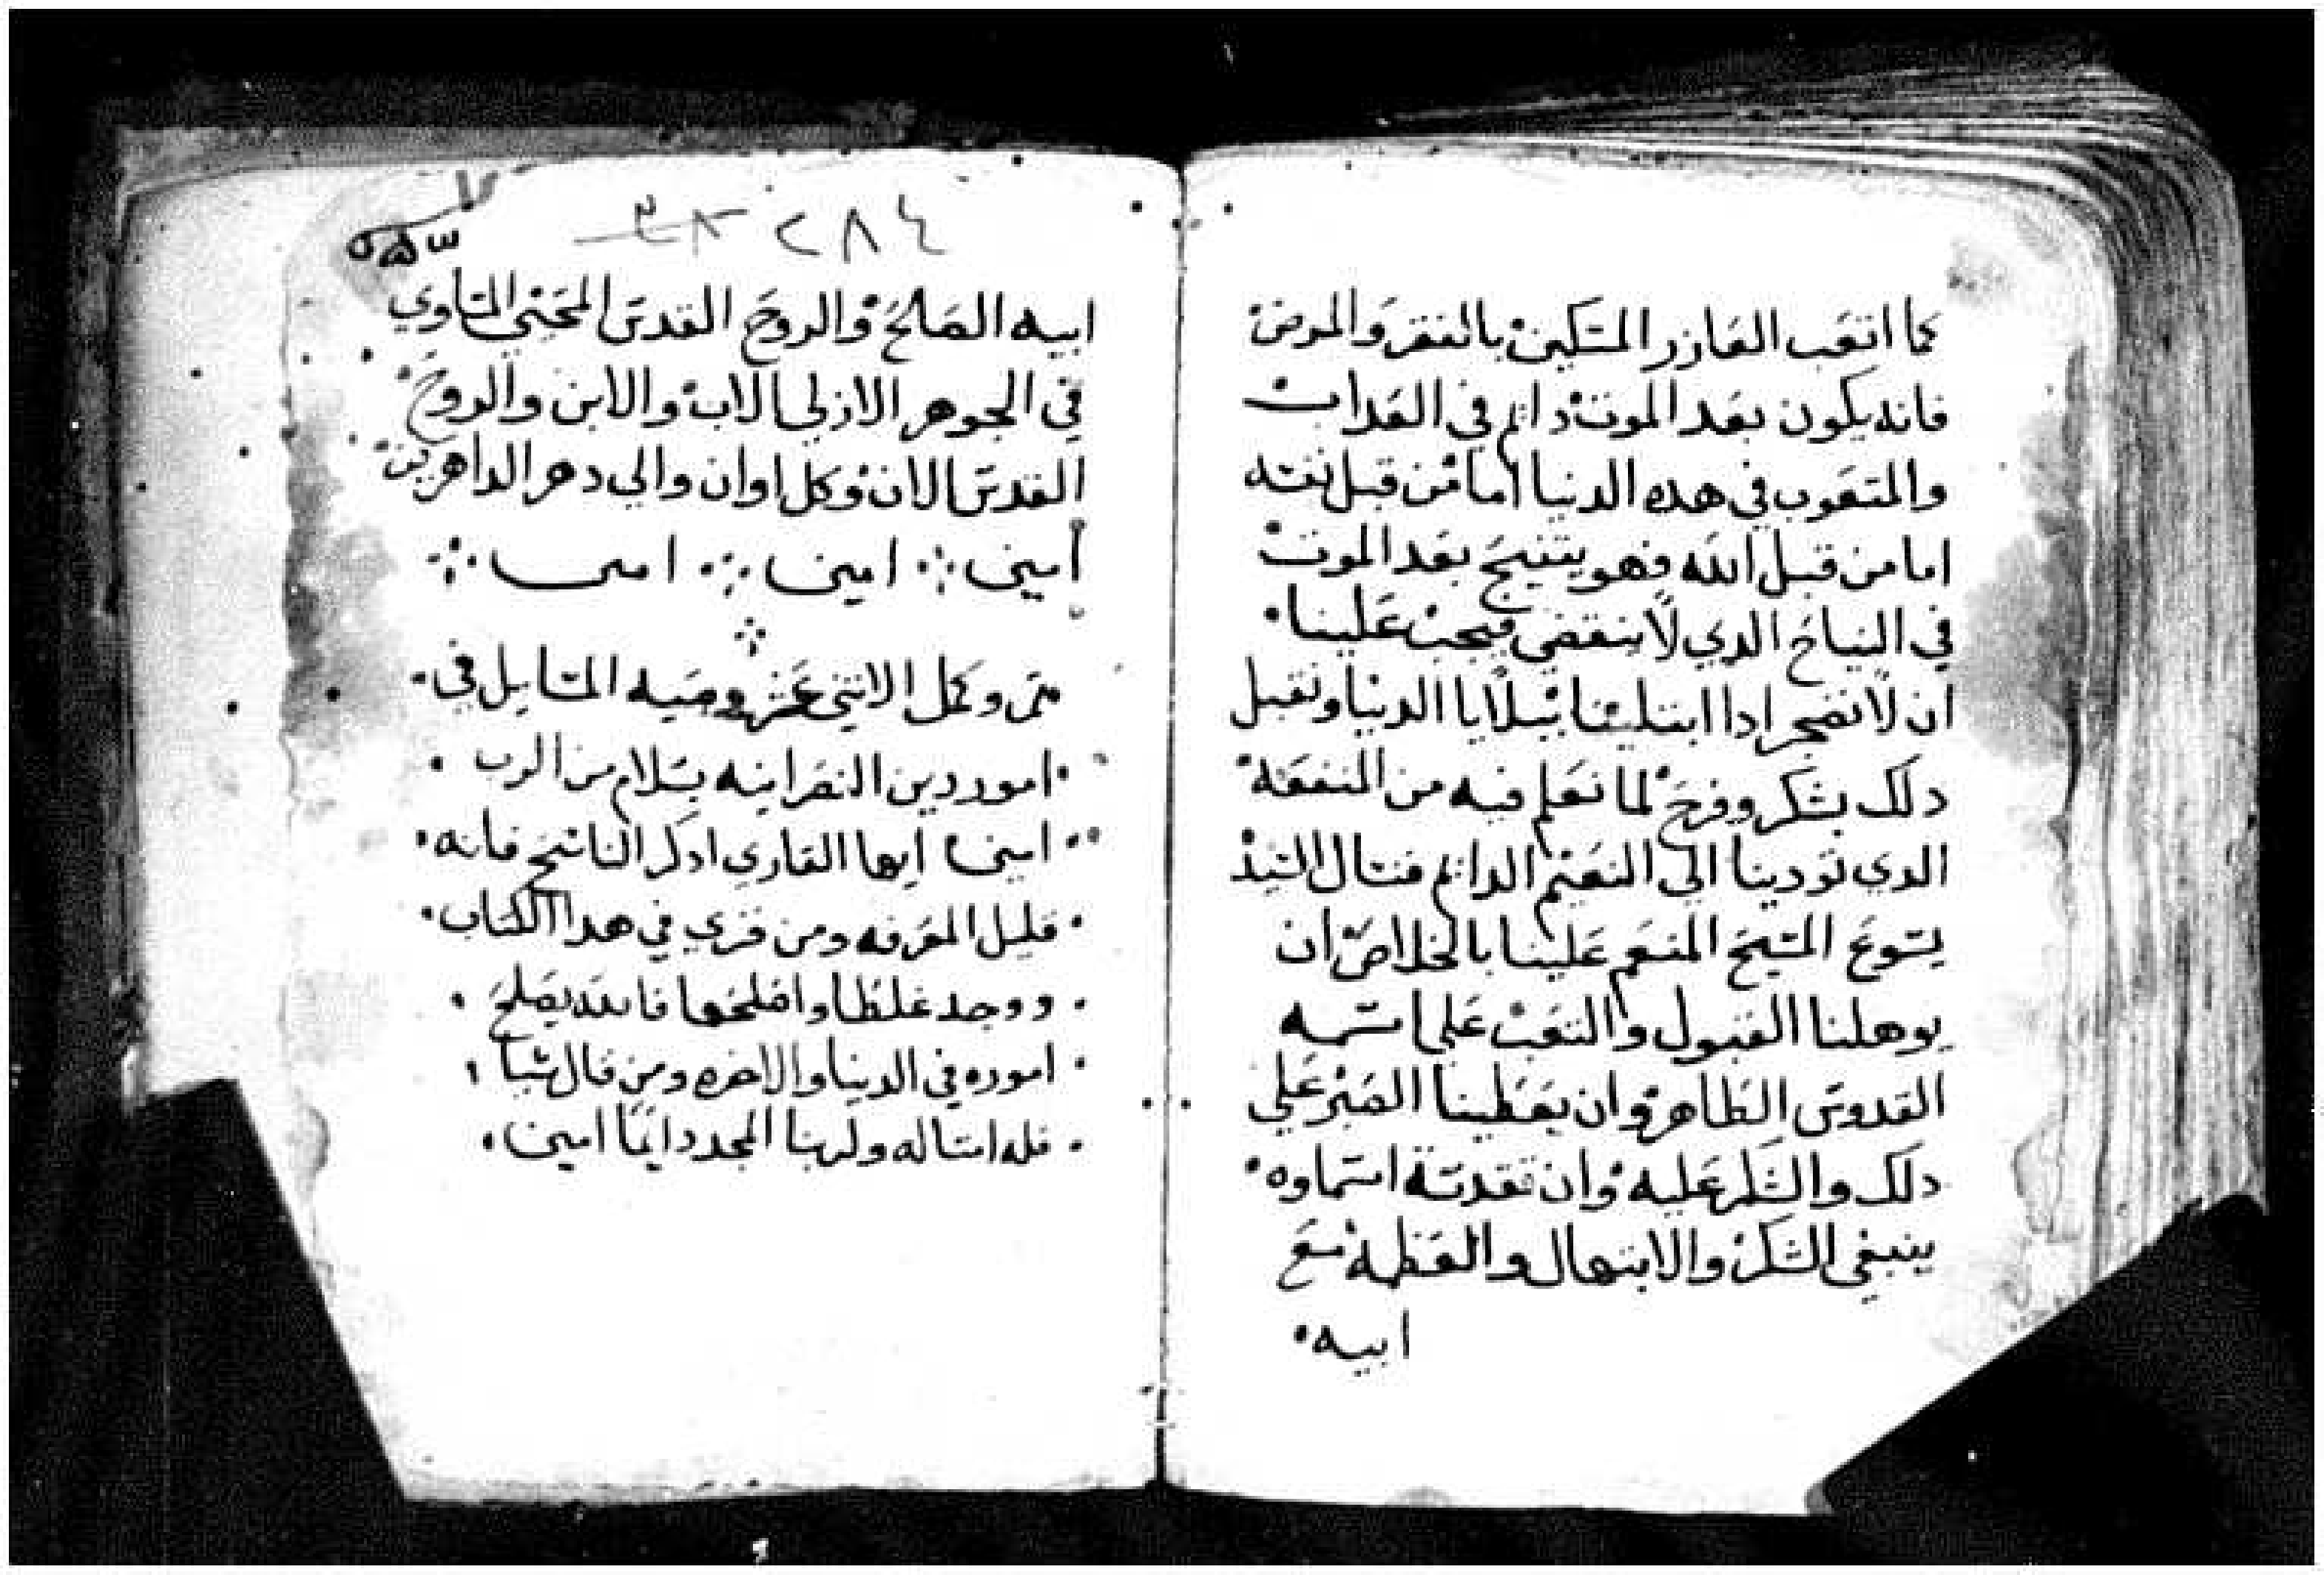 كما اتعب العازر المسكين بالفقر والمرض
فانه يكون بعد الموت دايم في العداب
والمتعوب في هده الدنيا اما من قبل نفسه
اما من قبل الله فهو يتنيح بعد الموت
في النياح الدي لا ينقضي فيجب علينا
ان لا نضجر ادا ابتلينا ببلايا الدنيا ونقبل
دلك بشكر وفرح لما نعلم فيه من المنفعة
الدي تودينا الي النعيم الدايم فنسال السيد
يسوع المسيح المنعم علينا بالخلاص ان
يوهلنا القبول والتعب علي اسمه
القدوس الطاهر وان يعطينا الصبر علي
دلك والشكر عليه وان تقدسة اسماوه
ينبغي الشكر والابتهال والعظمه مع
ابيه
٢٨٤
ابيه الصالح والروح القدس المحيي المساوي
في الجوهر الازلي الاب والابن والروح
القدس الان وكل اوان والي دهر الداهرين
امين امين امين
تم وكمل الاثني عشر وميه المسايل في
امور دين النصرانيه بسلام من الرب
امين ايها القاري ادكر الناسخ فانه
قليل المعرفه ومن قري في هدا الكتاب
ووجد غلطا واصلحها فالله يصلح
اموره في الدنيا والاخره ومن قال شيا
فله امتاله ولربنا المجد دايما امين